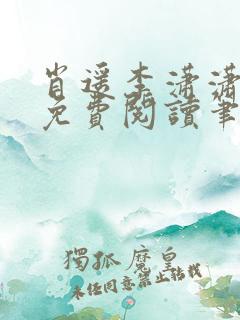 肖遥李潇潇
免費閱讀筆
獨孤魔皇
未经同意禁止转载